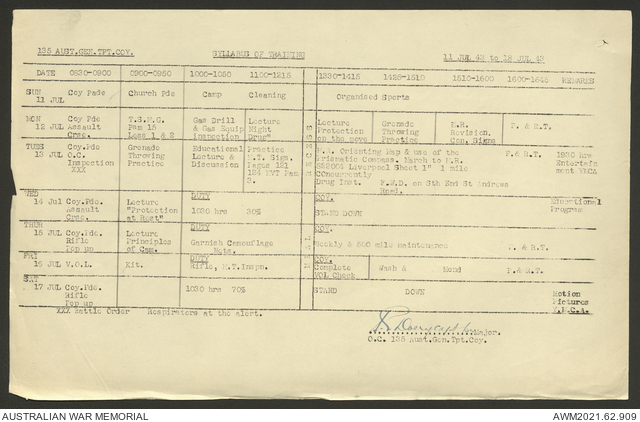 135 AUST.GEN.TPT.COY. SYLLABUS OF TRAINING 11 JUL 43 to 18 JUL 43
DATE 0830-0900 0900-0950 1000-1050 1100-1215 1330-1415 1425-1510 1510-1600 1600-1645 REMARKS
SUN Coy Pade Church Pde Camp Cleaning Organised Sports
11 JUL
MON Coy Pde T.S.M.G. Gas Drill Lecture Lecture Grenade M.R. P. & R.T.
12 JUL Assault Pam 15 & Gas Equip Night Protection Throwing Revision.
Crse. Less 1 & 2 Inspection Drug" on the move Practice Con. Signs
TUES Coy.Pde Grenade Educational Practice Orienting Map & use of the P.& R.T. 1930 hrs
13 JUL O.C. Throwing Lecture & M.T. Sign. Prismatic Compass. March to M.R. Entertain
Inspection Practice Discussion Pages 121 Liverpool Sheet 1" 1 mile ment YMCA
XXX 124 MVT Pam Concurrently
3. Drug Inst. F.W.D. on 8th End St Andrews
Road.
WED DUTY Educational
14 Jul Coy.Pde. Lecture 1030 hrs 30% STAND DOWN Programe
Assault "Protection
Crse. at Rest"
THUR DUTY
15 JUL Coy.Pde. Lecture Garnish Camouflage Weekly & 500 mile Maintenance P. & R.T.
Rifle Principles Nets.
Pop up of Cam.
FRI DUTY
16 JUL V.O.L. Kit. Rifle, M.T. Inspn. Complete Wash & Mend P.& R.T.
VOL Check
SAT
17 JUL Coy.Pde. 1030 hrs 70% STAND DOWN Motion
Rifle Pictures
Pop up Y.M.C.A.
XXX Battle Order Respirators at the alert.
Major.
O.C. 135 Aust.Gen.Tpt.Coy.
AUSTRALIAN WAR MEMORIAL AWM2021.62.909